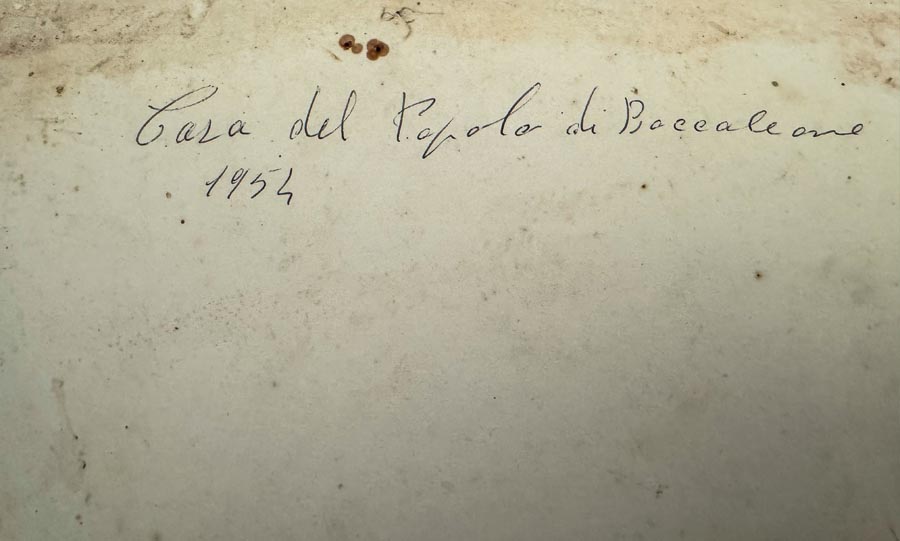 Casa del Popolo di Boccaleone
1954